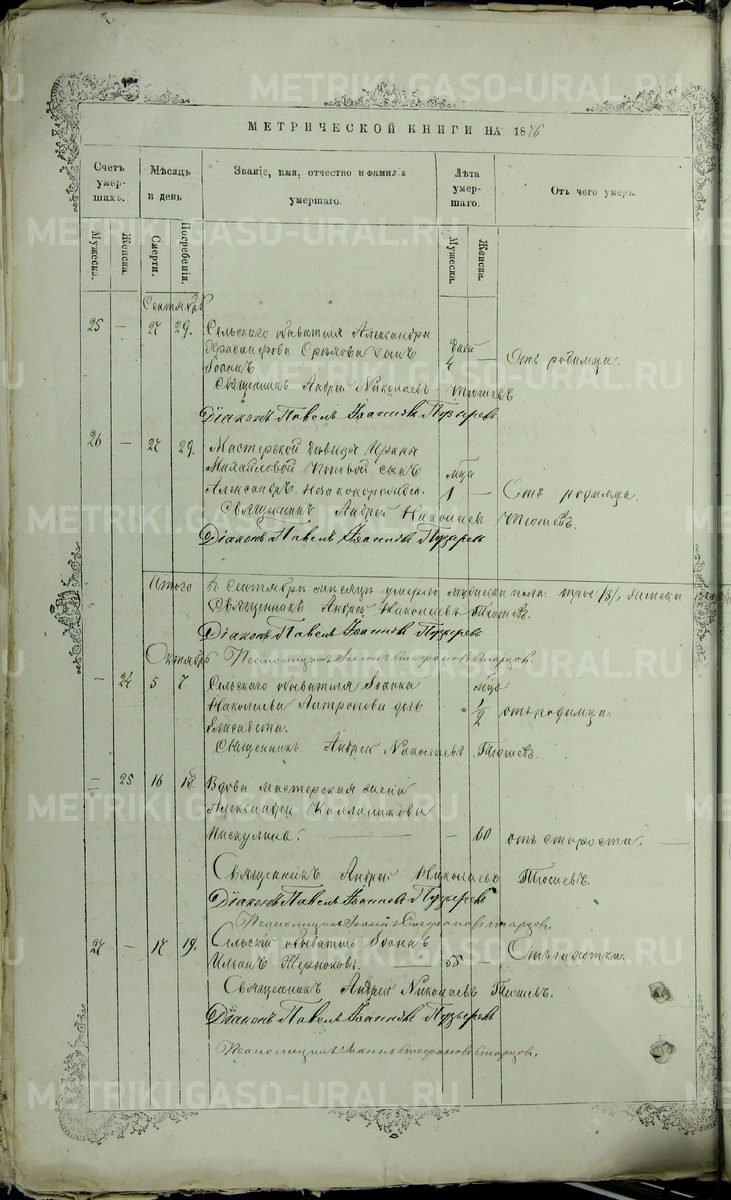 METRIKI.GASO-URAL.RU
МЕТРИЧЕСКОЙ КНИГИ НА 1876
Счетъ умершихъ.
Мѣсяцъ и день
Званіе, имя, отчество и фамилія умершаго.
Лѣта умершаго.
Отъ чего умеръ.
Мужеска.
Женска.
Смерти.
Погребенія.
Мужеска.
Женска.
Сентябрь
25 — 27 29. Сельскаго обывателя Александра
Орлова сынъ 4 дней — Отъ родимца.
Іоаннъ
Священникъ Андрей Николаевъ
Діаконъ Павелъ Іоанновъ Пузыревъ
26 — 27 29. Мастерской дѣвицы Ирины
Михайловой сынъ мца
Александръ незаконорожден. 1 — Отъ родимца.
Священникъ Андрей Николаевъ
Діаконъ Павелъ Іоанновъ Пузыревъ
Итого въ Сентябрѣ мѣсяцѣ умерло мужеска пола трое /3/, женска
Священникъ Андрей Николаевъ
Діаконъ Павелъ Іоанновъ Пузыревъ
Октябрь
Псаломщикъ Іоаннъ Стефановъ Старцовъ.
— 24 5 7 Сельскаго обывателя Іоанна мца
Николаева Антропова дочь 1/2 отъ родимца.
Елисавета.
Священникъ Андрей Николаевъ
— 25 16 18. Вдова мастерская жена
Александра Калланикова
— 60 отъ старости.
Священникъ Андрей Николаевъ
Діаконъ Павелъ Іоанновъ Пузыревъ
Псаломщикъ Іоаннъ Стефановъ Старцовъ.
27 — 17 19. Сельскій обыватель Іоаннъ
55 — Отъ чахотки.
Священникъ Андрей Николаевъ
Діаконъ Павелъ Іоанновъ Пузыревъ
Псаломщикъ Іоаннъ Стефановъ Старцовъ.